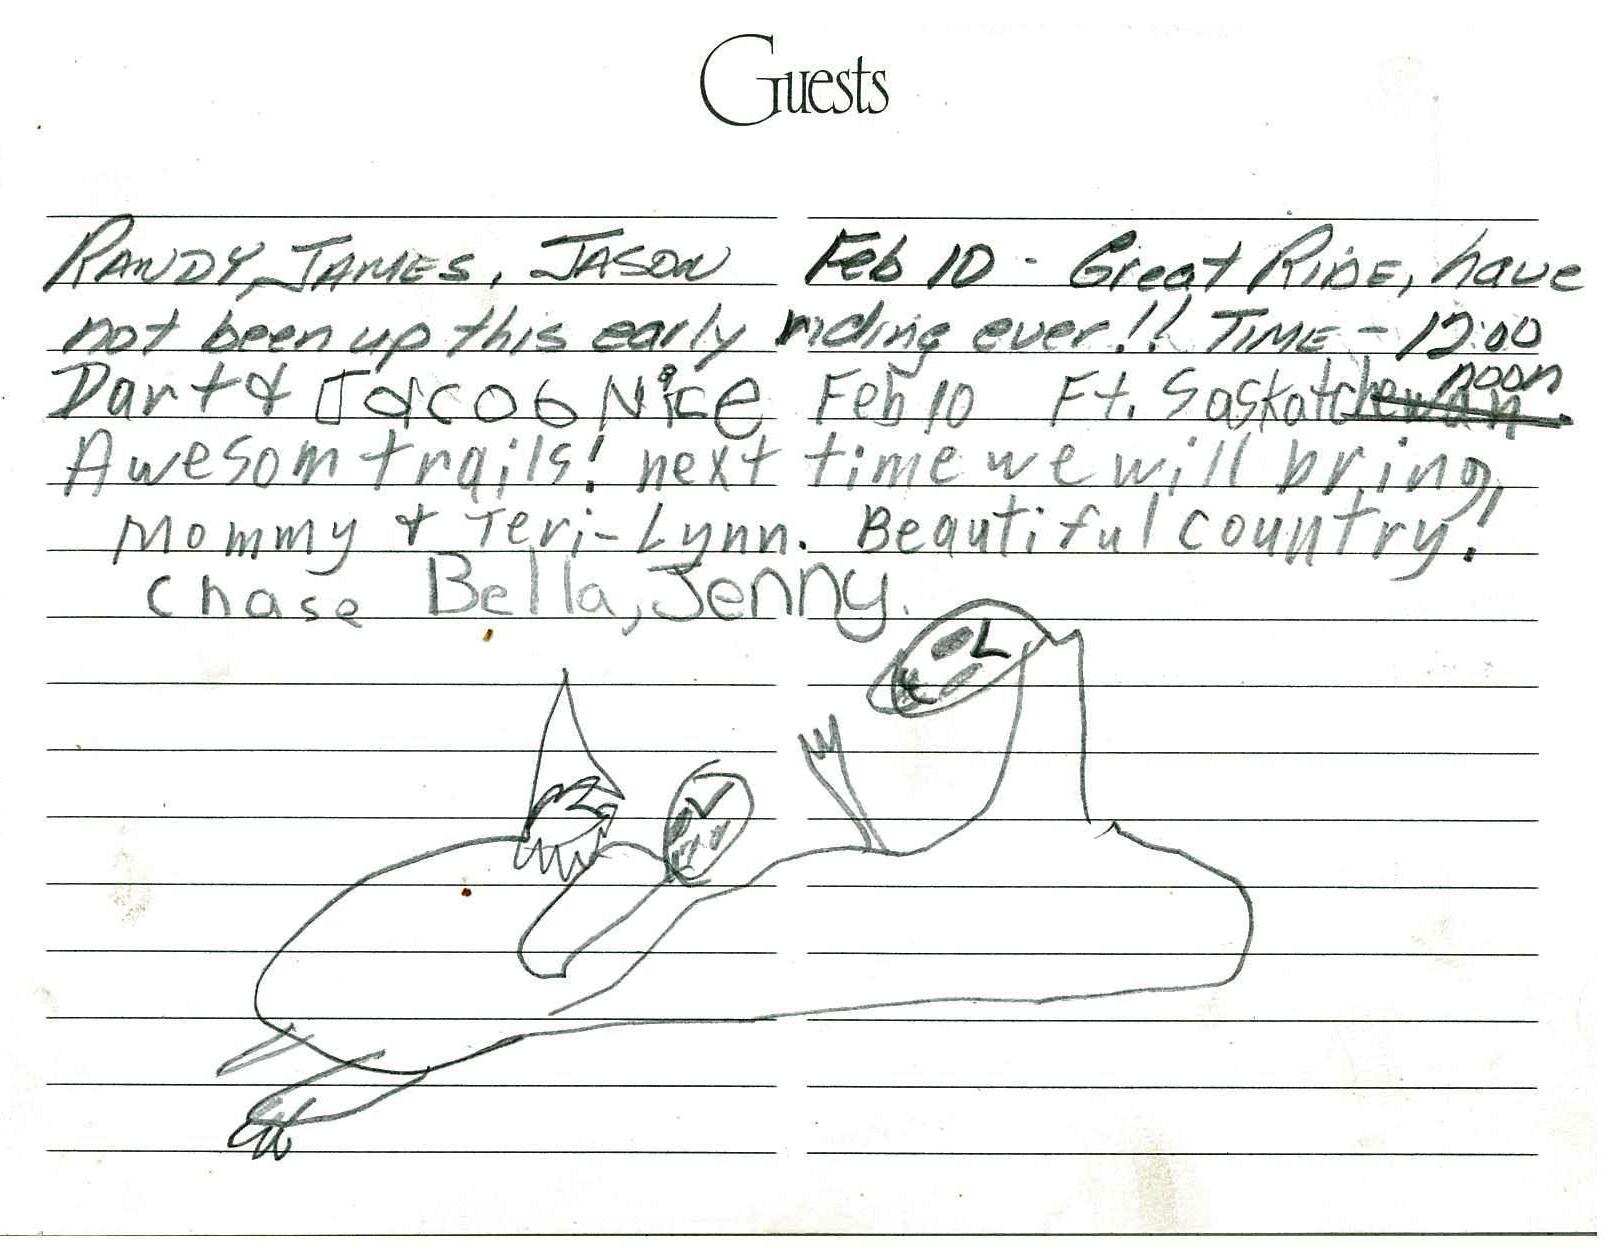 Guests
RANDY, JAMES, JASON Feb 10 - Great RIDE, have
not been up this early riding ever!! TIME - 12:00
noon
Dart & Jacob Nice Feb 10 Ft. Saskatchewan
Awesom trails! next time we will bring
Mommy & Teri-Lynn. Beautiful country!
Chase Bella, Jenny.